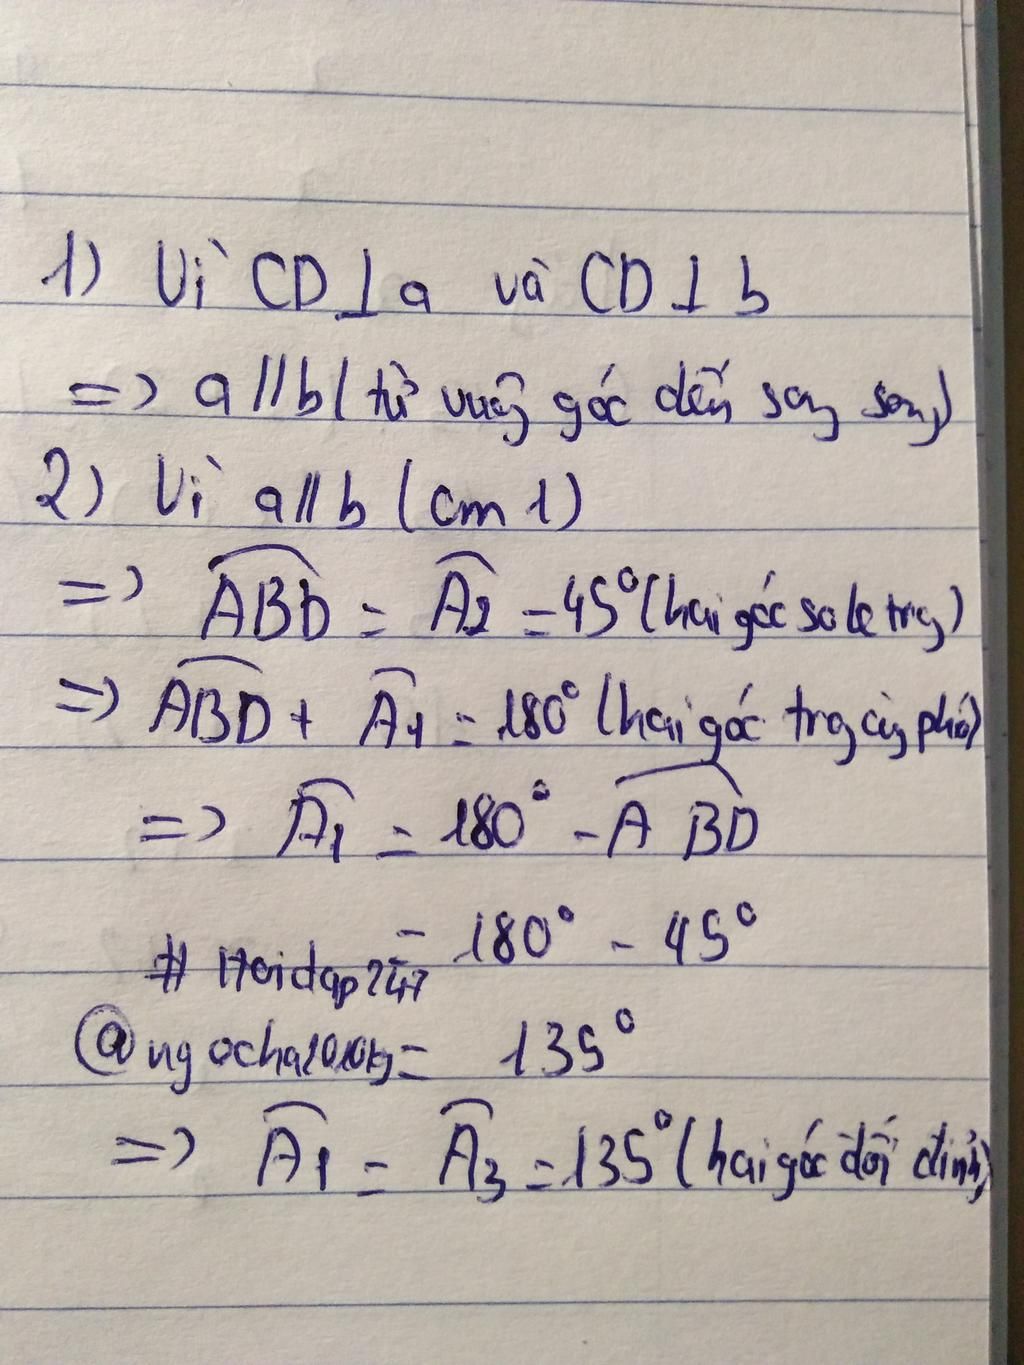 1) Vì CD⊥a và CD⊥b
=> a//b (từ vuôg góc đến sog sog)
2) Vì a//b (cm 1)
=> \widehat{ABD} = \widehat{A_2} = 45° (hai góc so le trg)
=> \widehat{ABD} + \widehat{A_1} = 180° (hai góc trg cùg phía)
=> \widehat{A_1} = 180° - \widehat{ABD}
= 180° - 45°
# Hoidap247
@ngocha2010kg = 135°
=> \widehat{A_1} = \widehat{A_3} = 135° (hai góc đối đỉnh)